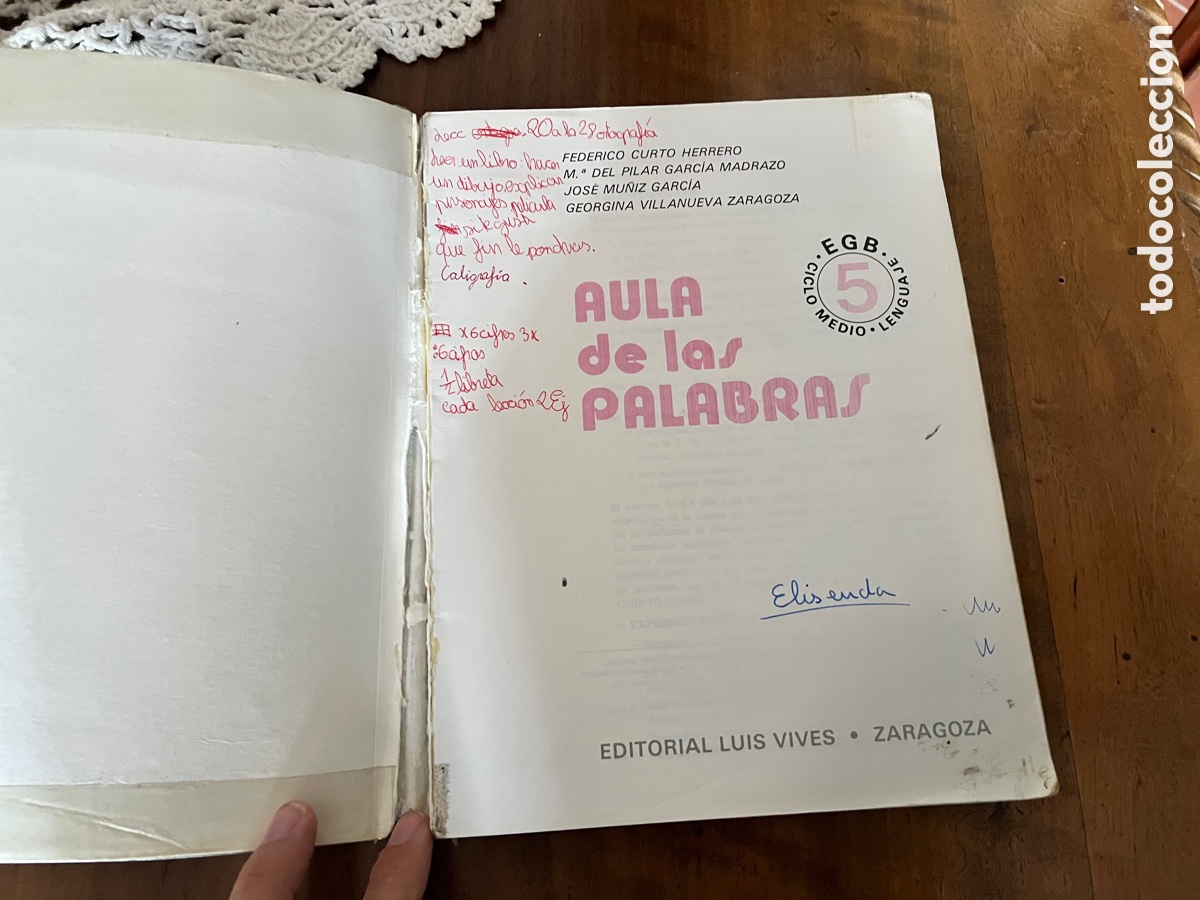 Lecc 20 a la 28 otografía
Leer un libro: hacer
un dibujo, explicar
personajes pelicula
si te gusta
que fin le pondrias.
Caligrafía.
x 6 cifras 3x
:6 cifras
1/2 libreta
cada lección 2 Ej
FEDERICO CURTO HERRERO
M.ª DEL PILAR GARCÍA MADRAZO
JOSÉ MUÑIZ GARCÍA
GEORGINA VILLANUEVA ZARAGOZA
EGB
5
CICLO MEDIO • LENGUAJE
AULA
de las
PALABRAS
Elisenda
EDITORIAL LUIS VIVES • ZARAGOZA
todocoleccion